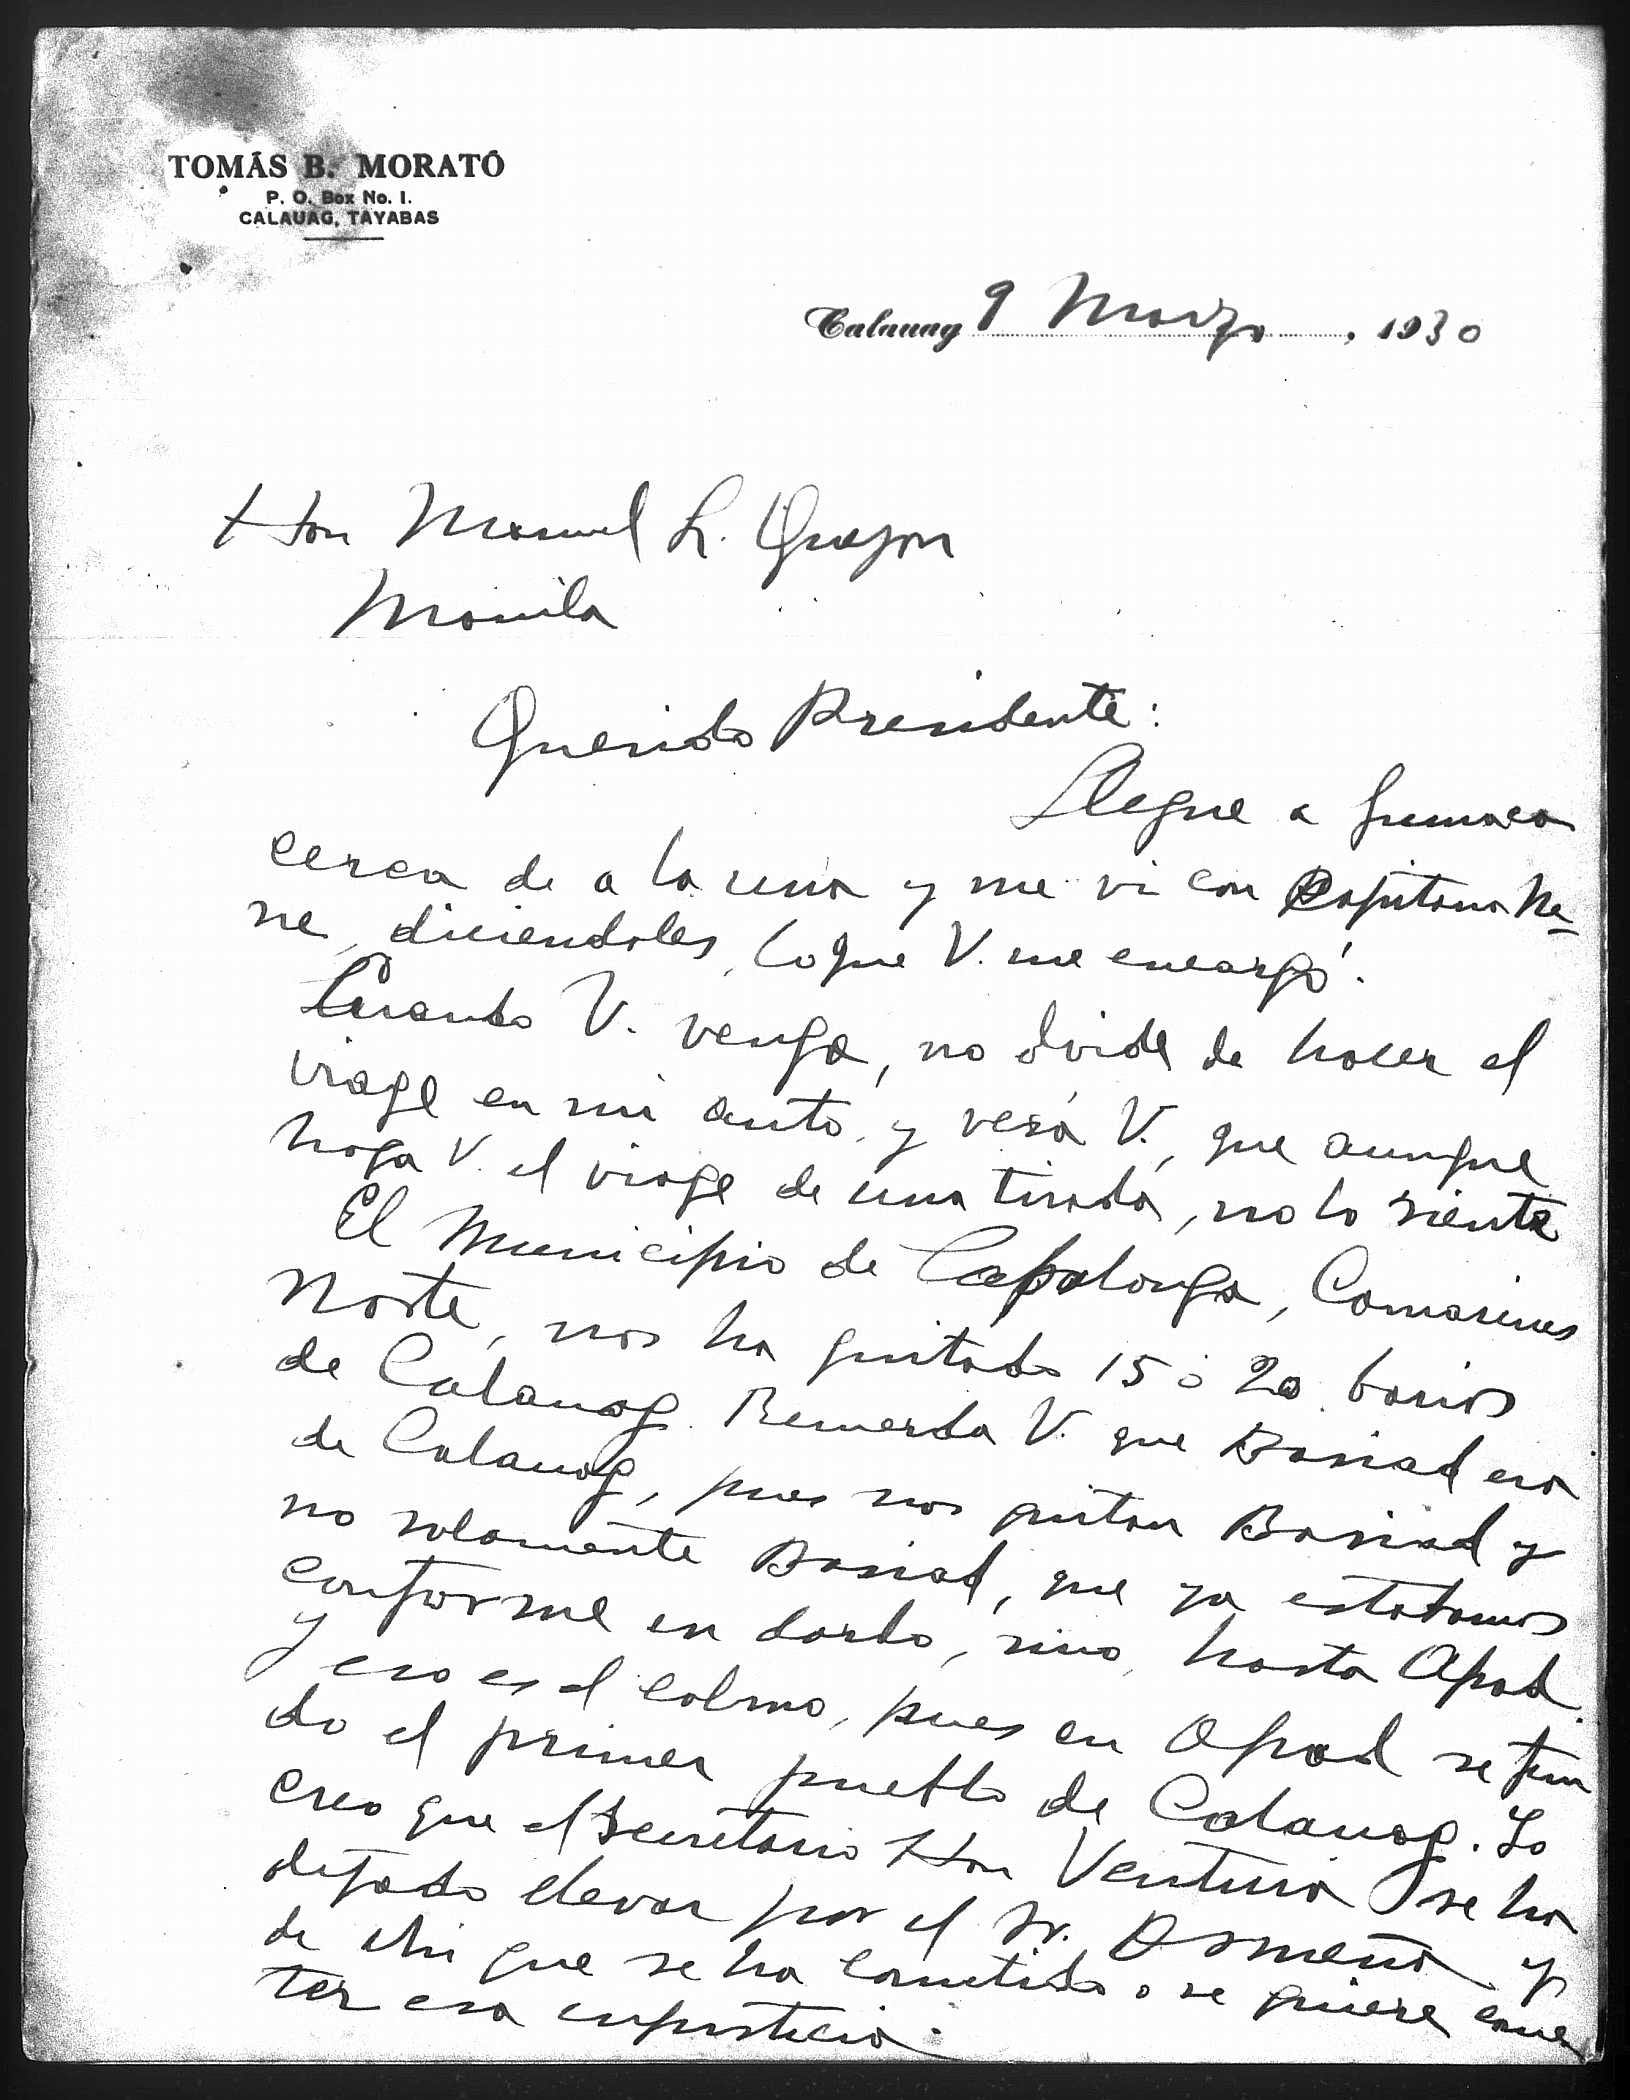 TOMÁS B. MORATÓ
P. O. Box No. 1.
CALAUAG, TAYABAS
Calauag 9 Marzo, 1930
Hon Manuel L. Quezon
Manila
Querido Presidente:
Llegue a Gumaca
cerca de a la una y me vi con Capitana Ne-
ne, diciendoles, lo que V. me encargó.
Cuando V. venga, no olvide de hacer el
viage en mi auto, y verá V., que aunque
haga V. el viage de una tirada, no lo siente
El Municipio de Capalonga, Camarines
Norte, nos ha quitado 15 ó 20 barios
de Calauag. Recuerda V. que Basiad era
de Calauag, pues nos quitan Basiad y
no solamente Basiad, que ya estabamos
conforme en darlo, sino, hasta Apad.
y eso es el colmo, pues en Apad se fun
do el primer pueblo de Calauag. Yo
creo que el Secretario Hon Ventura se ha
dejado llevar por el Sr. Osmeña y
de ahi que se ha cometido o se quiere come
ter esa injusticia.